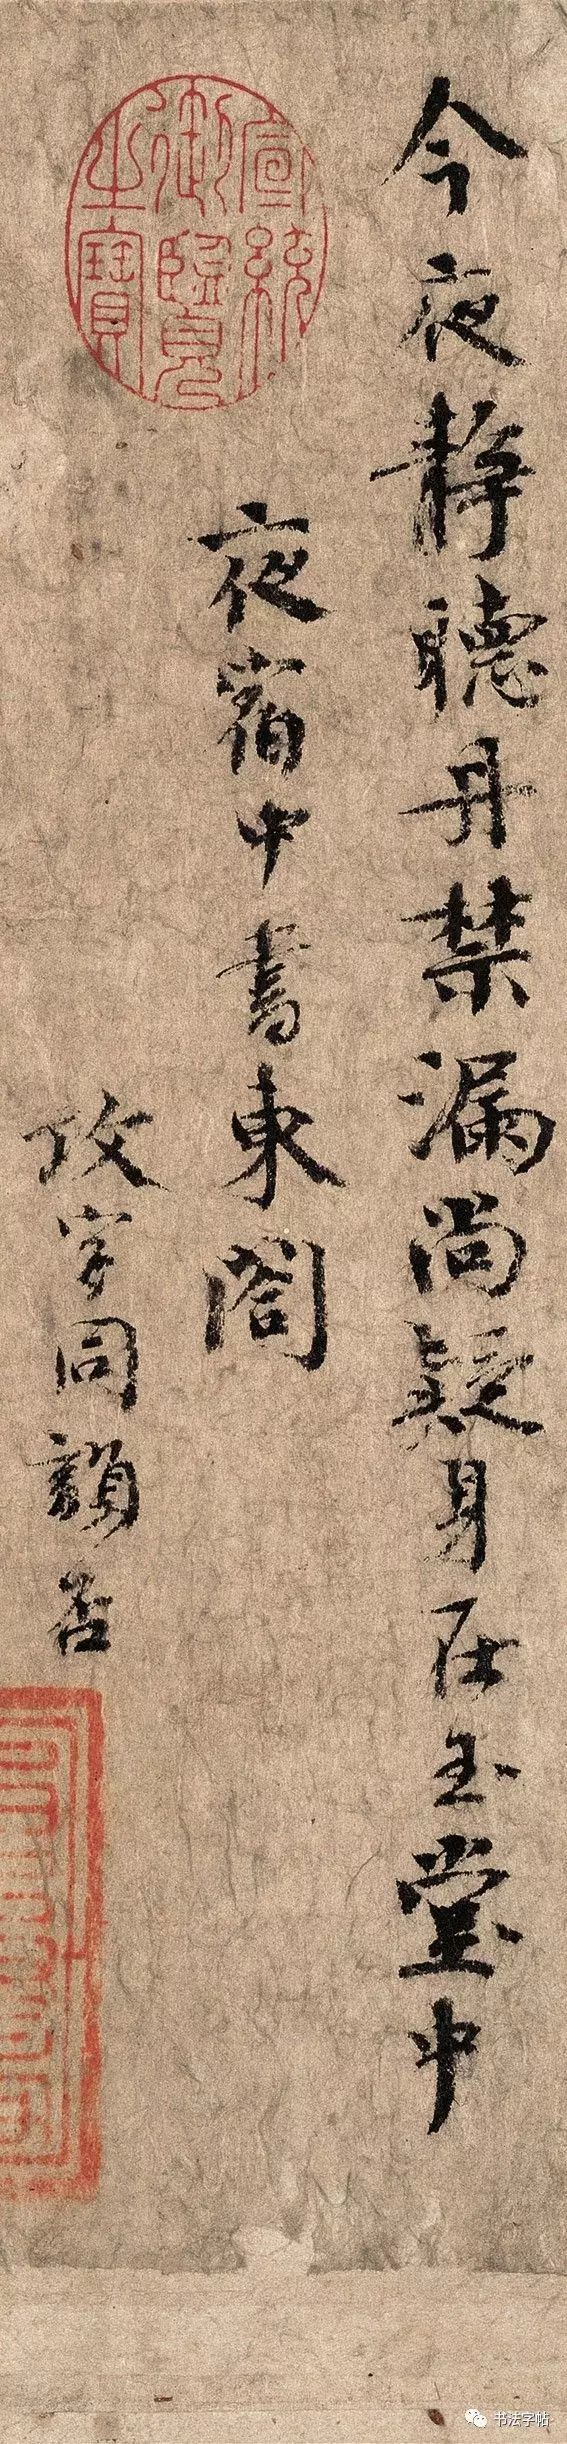 今夜静聽丹禁漏尚疑身在玉堂中
夜宿中書東閤
改字同韻否
宣統御覽之寶
书法字帖